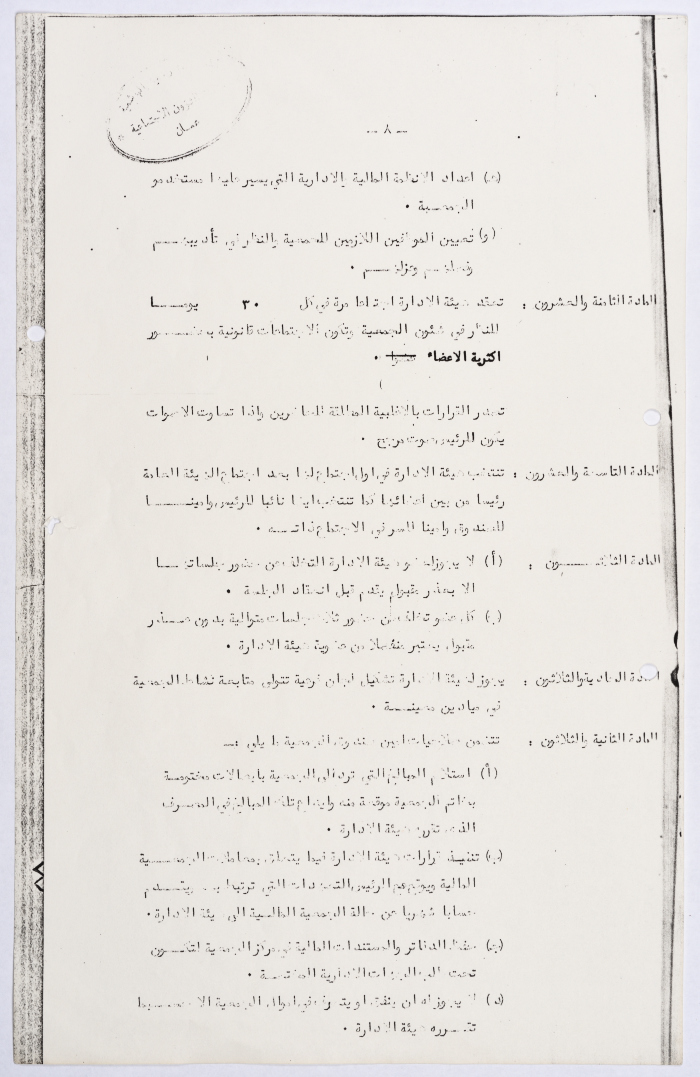 الشؤون الاجتماعية
عمان
- ٨ -
(هـ) اعداد الانظمة المالية والادارية التي يسير عليها مستخدمو
الجمعية ٠
(و) تعيين الموظفين اللازمين للجمعية والنظر في تأديبهم
وفصلهم وعزلهم ٠
المادة الثامنة والعشرون : تعقد هيئة الادارة اجتماعا مرة في كل ٣٠ يوما
للنظر في شئون الجمعية وتكون الاجتماعات قانونية بحضور
اكثرية الاعضاء ٠
تصدر القرارات بالاغلبية المطلقة للحاضرين واذا تساوت الاصوات
يكون للرئيس صوت مرجح ٠
المادة التاسعة والعشرون : تنتخب هيئة الادارة في اول اجتماع لها بعد اجتماع الهيئة العامة
رئيسا من بين اعضائها كما تنتخب ايضا نائبا للرئيس وامينا
للصندوق وامينا للسر في الاجتماع ذاته ٠
المادة الثلاثون : (أ) لا يجوز لعضو هيئة الادارة التخلف عن حضور جلساتها
الا بعذر مقبول يقدم قبل انعقاد الجلسة ٠
(ب) كل عضو تخلف عن حضور ثلاث جلسات متوالية بدون عذر
مقبول يعتبر منفصلا من عضوية هيئة الادارة ٠
المادة الحادية والثلاثون : يجوز لهيئة الادارة تشكيل لجان فرعية تتولى متابعة نشاط الجمعية
في ميادين معينة ٠
المادة الثانية والثلاثون : تتضمن صلاحيات امين صندوق الجمعية ما يلي :-
(أ) استلام المبالغ التي ترد الى الجمعية بايصالات مختومة
بخاتم الجمعية موقعة منه وايداع تلك المبالغ في المصرف
الذي تقرره هيئة الادارة ٠
(ب) تنفيذ قرارات هيئة الادارة فيما يتعلق بمعاملات الجمعية
المالية ويوقع مع الرئيس التعهدات التي ترتبط بها ويقدم
حسابا شهريا عن حالة الجمعية المالية الى هيئة الادارة ٠
(ج) حفظ الدفاتر والمستندات المالية في مركز الجمعية لتكون
تحت طلب الجهات الادارية المختصة ٠
(د) لا يجوز له ان ينفق او يتصرف في اموال الجمعية الا حسبما
تقرره هيئة الادارة ٠